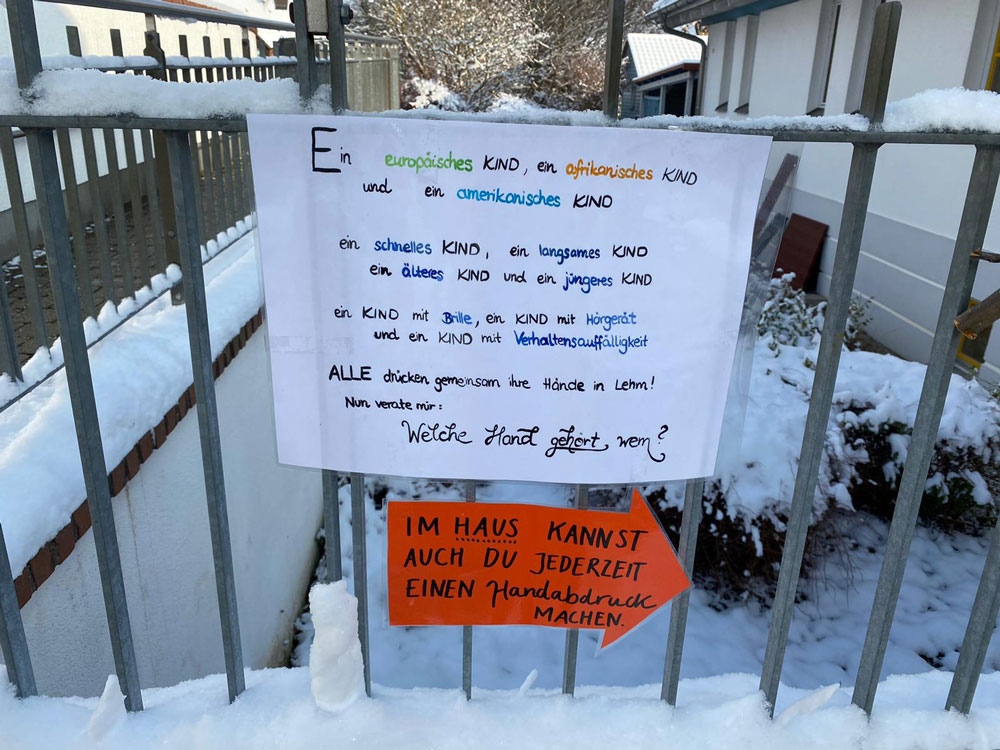 Ein europäisches KIND, ein afrikanisches KIND
und ein amerikanisches KIND
ein schnelles KIND, ein langsames KIND
ein älteres KIND und ein jüngeres KIND
ein KIND mit Brille, ein KIND mit Hörgerät
und ein KIND mit Verhaltensauffälligkeit
ALLE drücken gemeinsam ihre Hände in Lehm!
Nun verate mir:
Welche Hand gehört, wem?
IM HAUS KANNST
AUCH DU JEDERZEIT
EINEN Handabdruck
MACHEN.